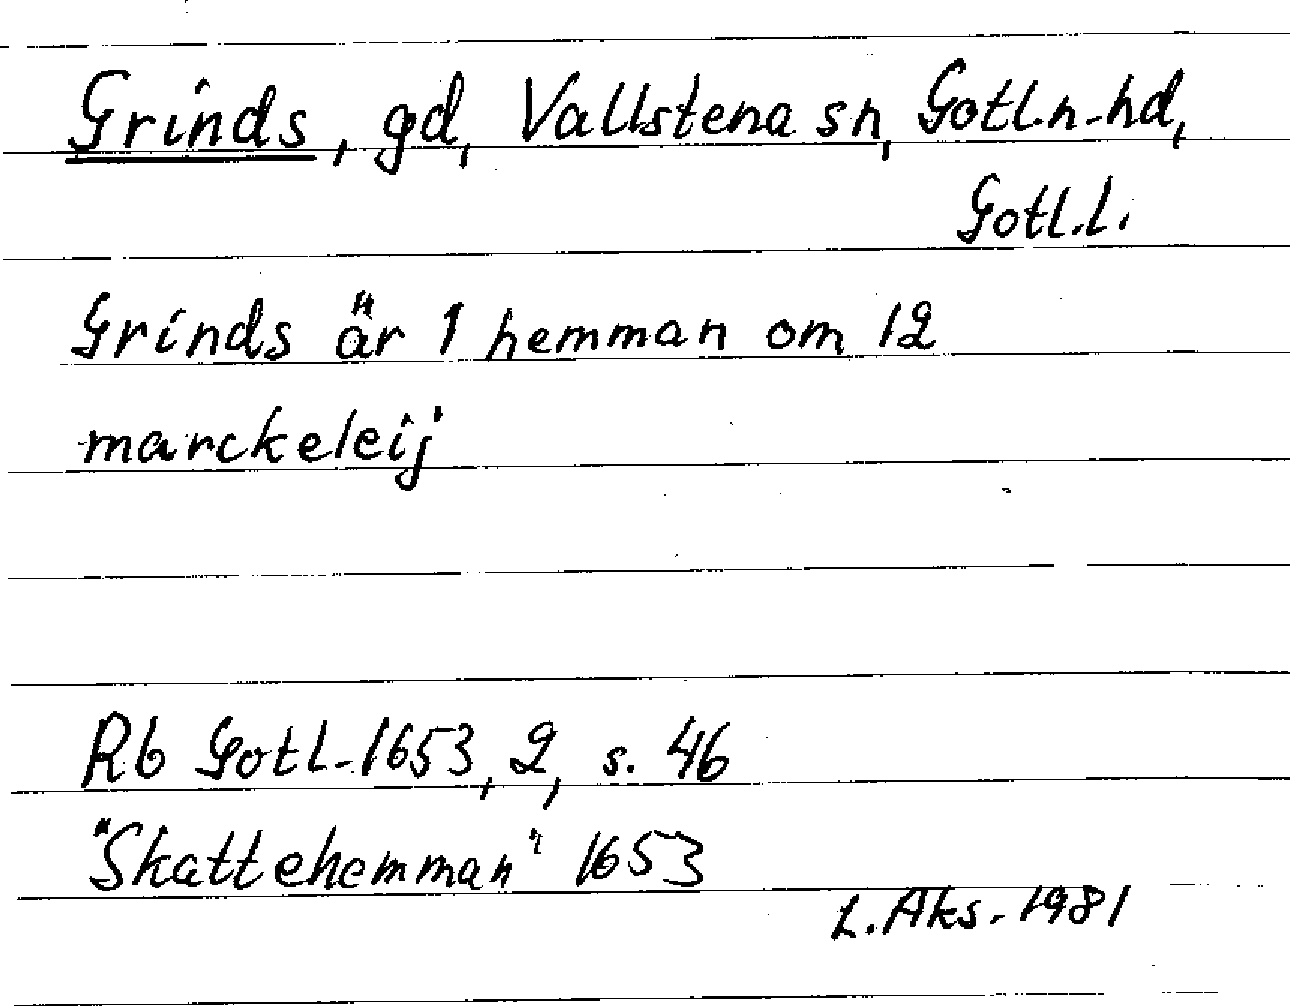 Grinds, gd, Vallstena sn, Gotl.n.hd,
Gotl.l.
Grinds är 1 hemman om 12
marckeleij
Rb Gotl. 1653, 2, s. 46
"Skattehemman" 1653
L. Aks. 1981